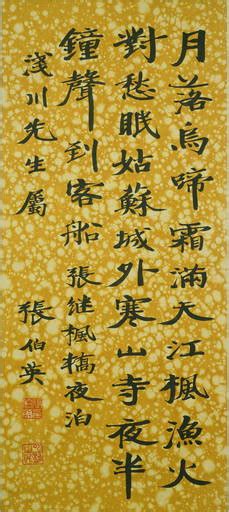 月落烏啼霜滿天江楓漁火
對愁眠姑蘇城外寒山寺夜半
鐘聲到客船 張继楓橋夜泊
淺川先生屬 張伯英